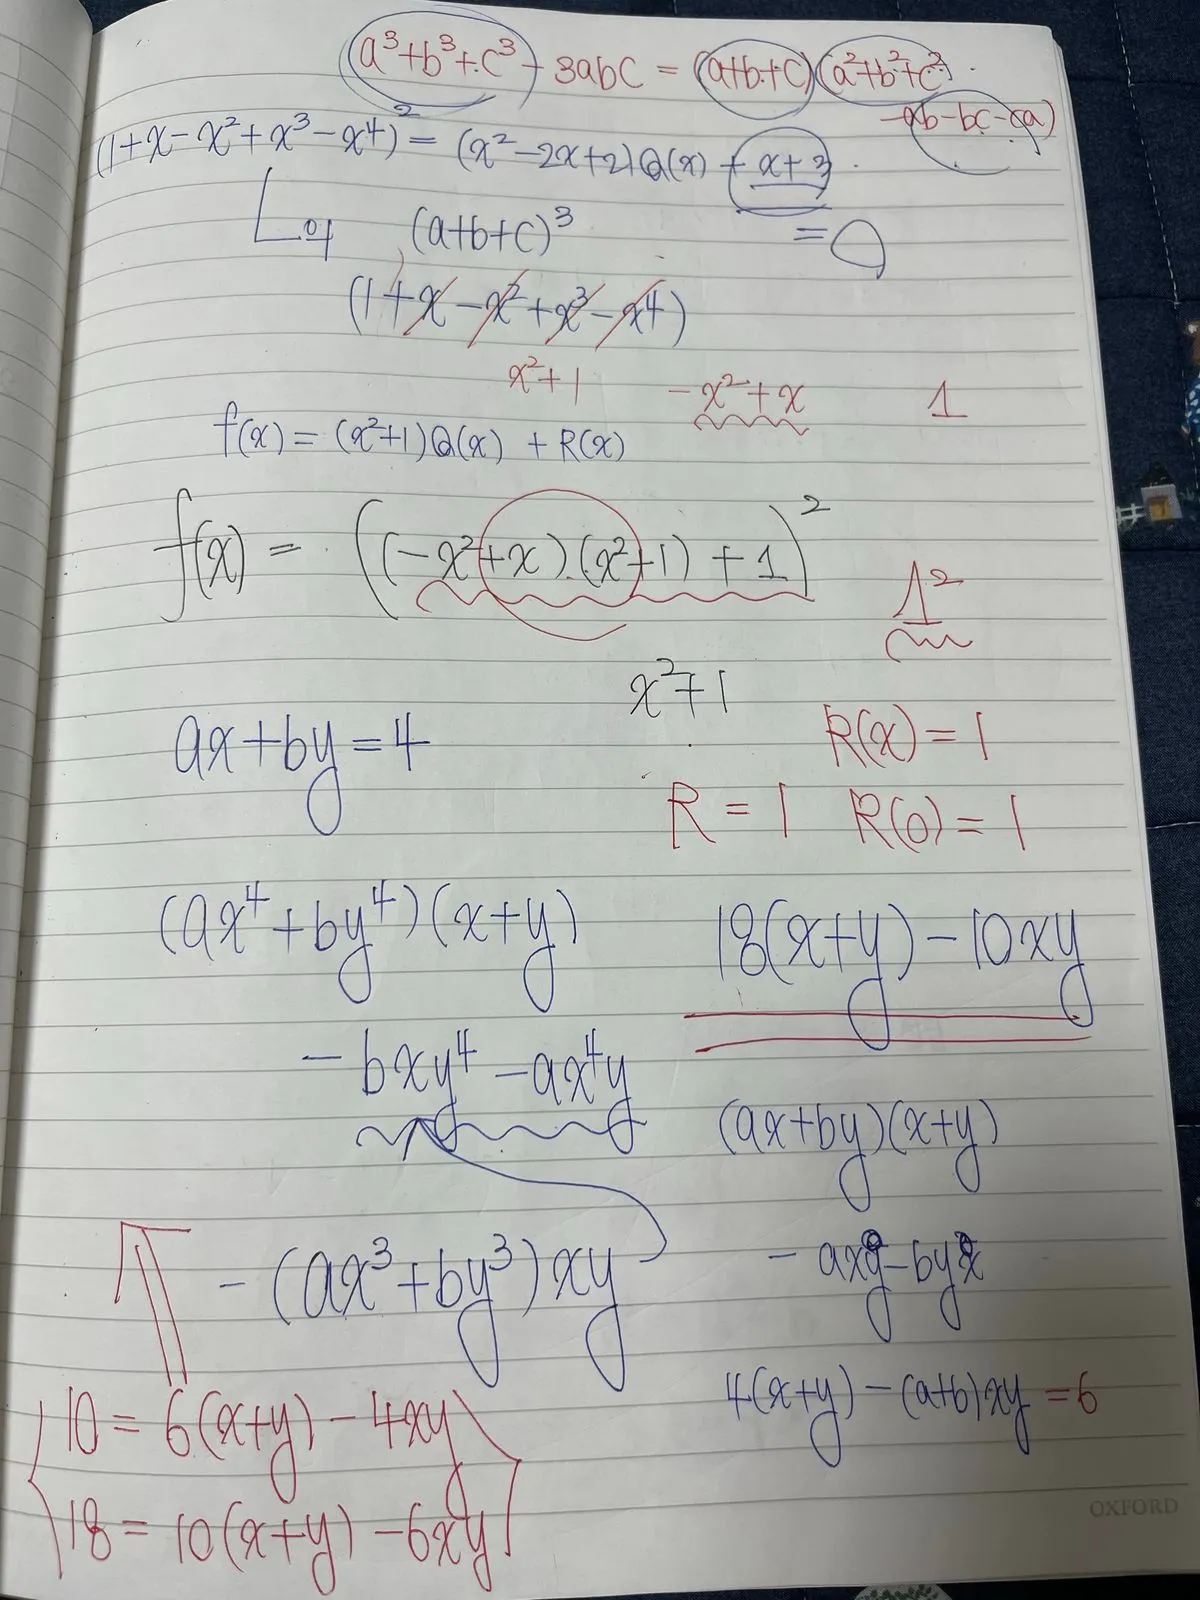 a³+b³+c³ - 3abc = (a+b+c)(a²+b²+c²
-ab-bc-ca)
(1+x-x²+x³-x⁴)² = (x²-2x+2)Q(x) + x+3
(a+b+c)³ =
(1+x-x²+x³-x⁴)
x²+1 -x²+x 1
f(x) = (x²+1)Q(x) + R(x)
f(x) = ((-x²+x)(x²+1)+1)²
1²
x²+1
ax+by=4
R(x)=1
R=1 R(0)=1
(ax⁴+by⁴)(x+y)
18(x+y)-10xy
-bxy⁴-ax⁴y
(ax+by)(x+y)
-(ax³+by³)xy
-axy-byx
4(x+y)-(a+b)xy=6
10=6(x+y)-4xy
18=10(x+y)-6xy
OXFORD